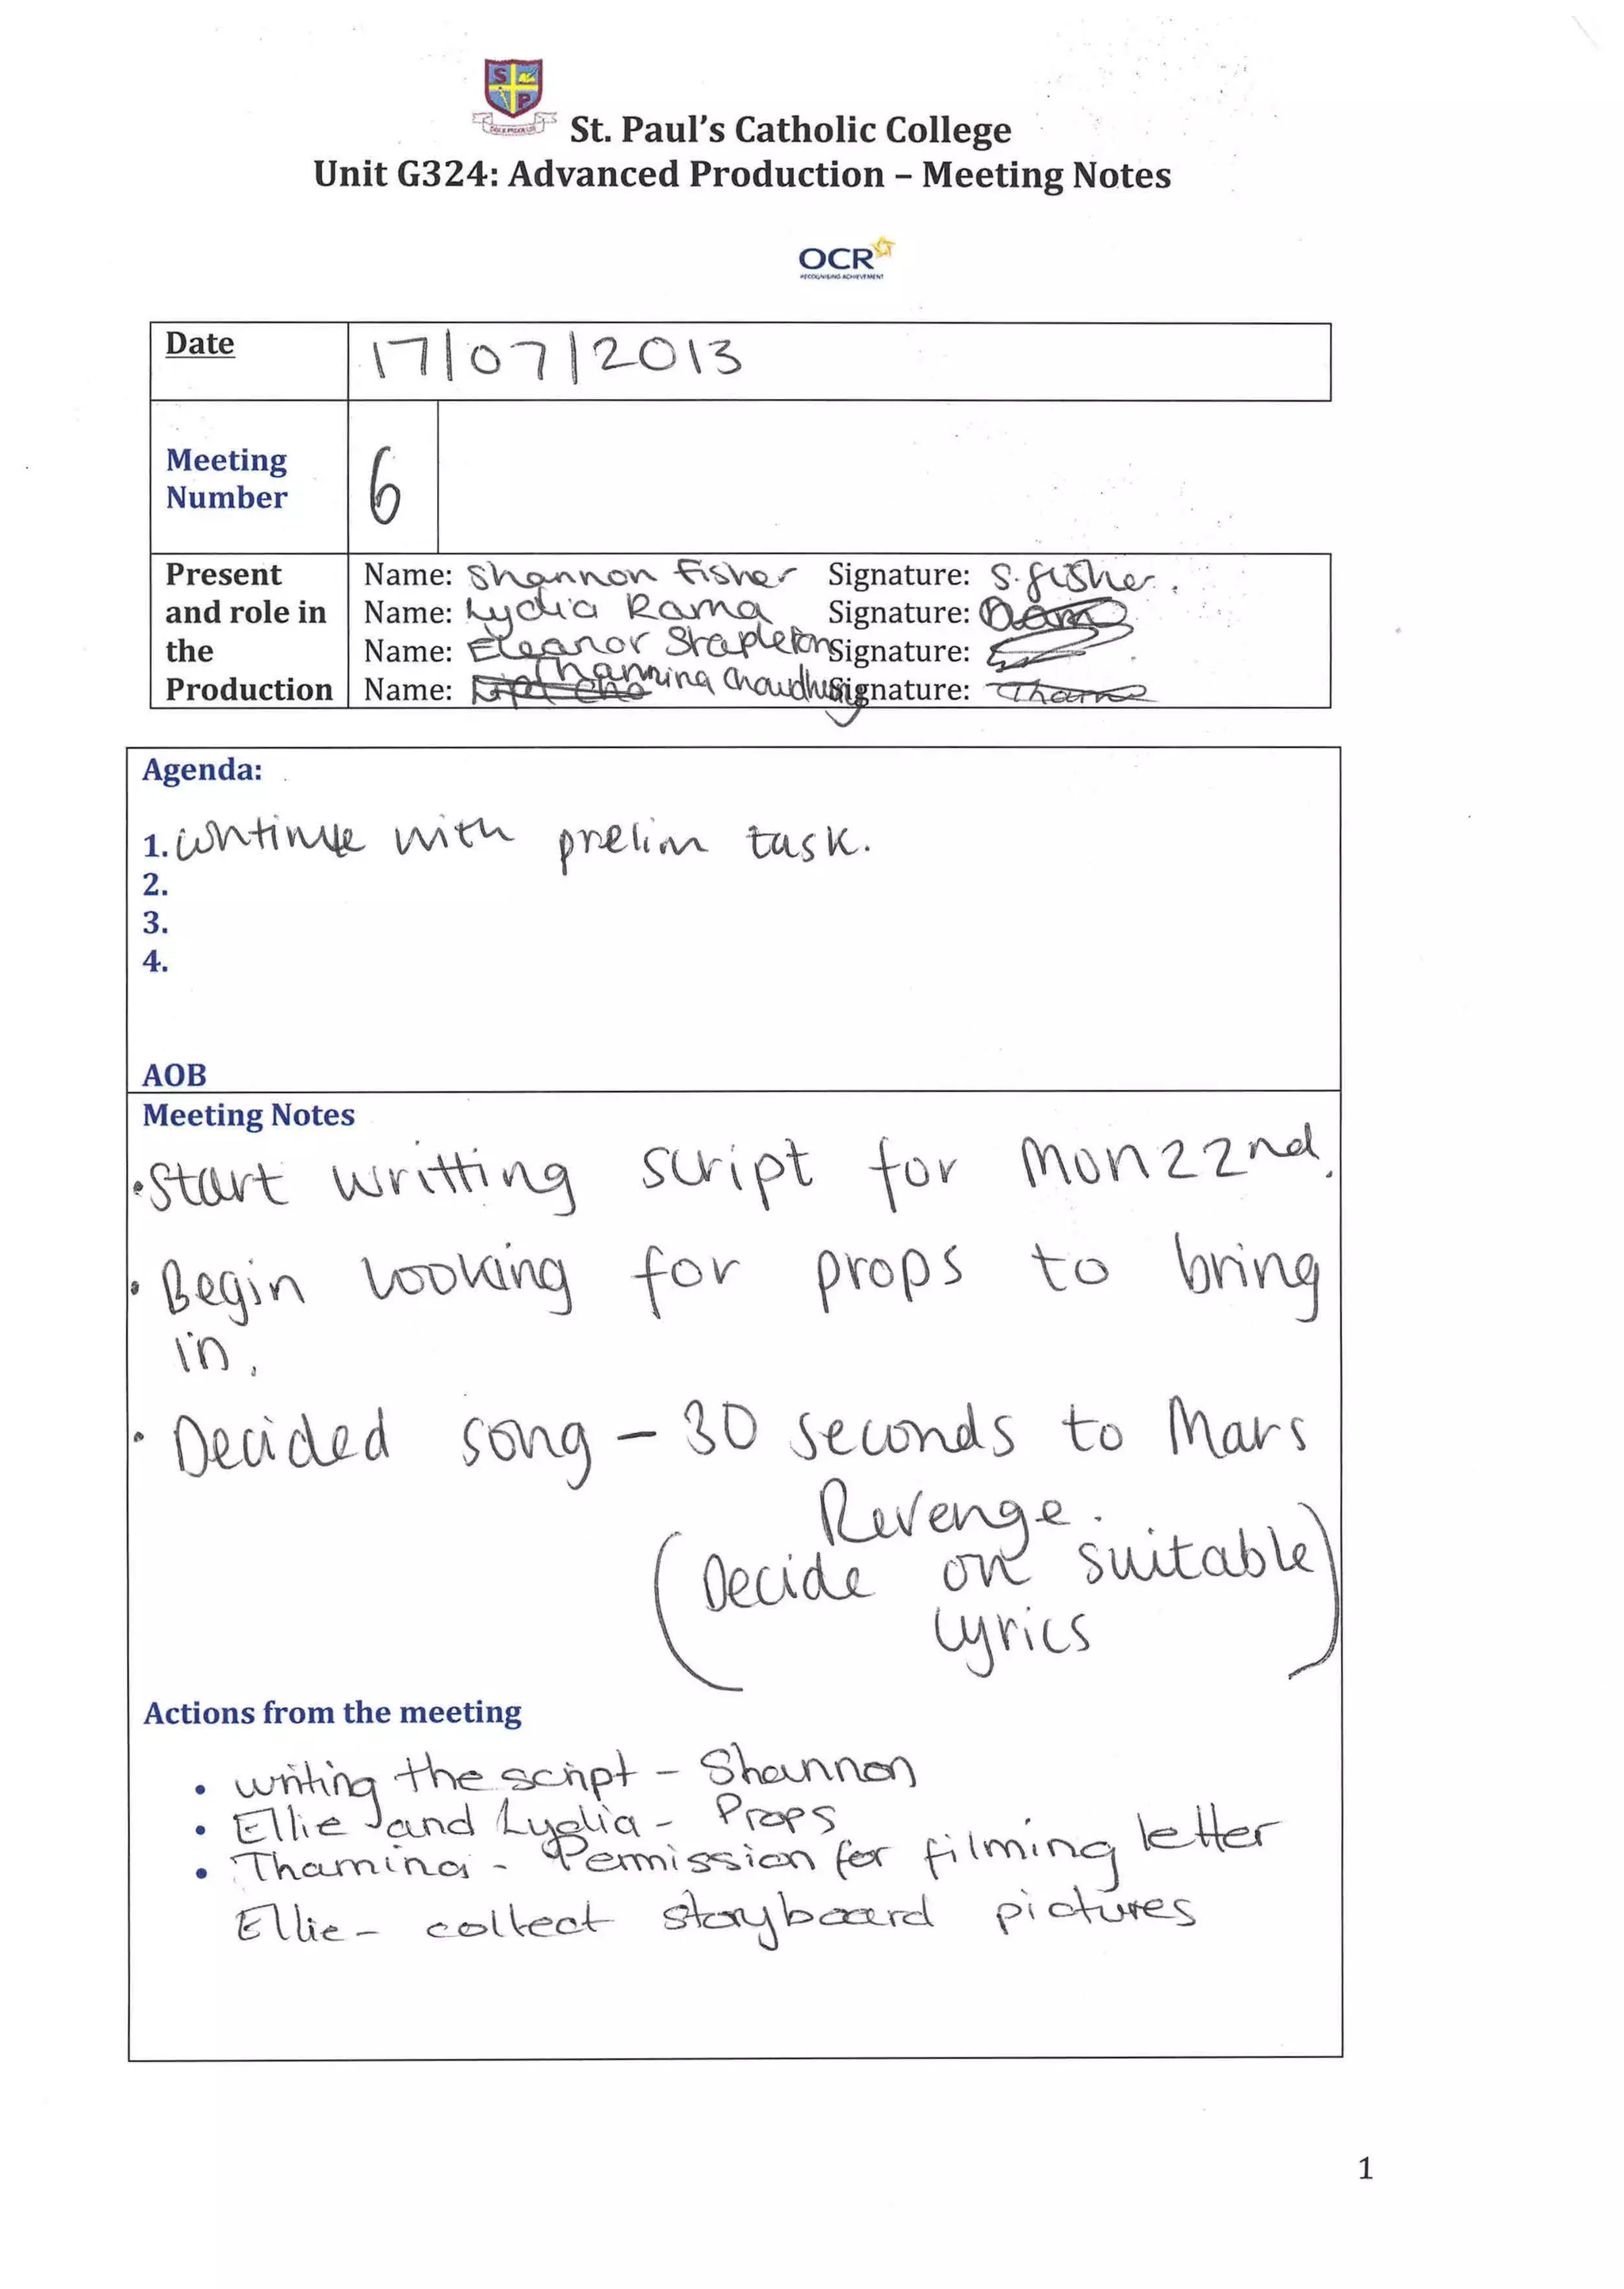 S
P
St. Paul's Catholic College
Unit G324: Advanced Production – Meeting Notes
OCR
RECOGNISING ACHIEVEMENT
Date 17/07/2013
Meeting
Number 6
Present and role in the Production
Name: Shannon Fisher Signature: S. fisher.
Name: Lydia Rama Signature:
Name: Eleanor Stapleton Signature:
Name: Thammina Choudhury Signature:
Agenda:
1. continue with prelim task.
2.
3.
4.
AOB
Meeting Notes
• Start writting script for Mon 22nd.
• Begin looking for props to bring
in.
• Decided song – 30 seconds to Mars
Revenge.
(Decide on suitable
lyrics)
Actions from the meeting
• writing the script – Shannon
• Ellie and Lydia – Props
• Thamina – Permission for filming letter
Ellie – collect storyboard pictures
1